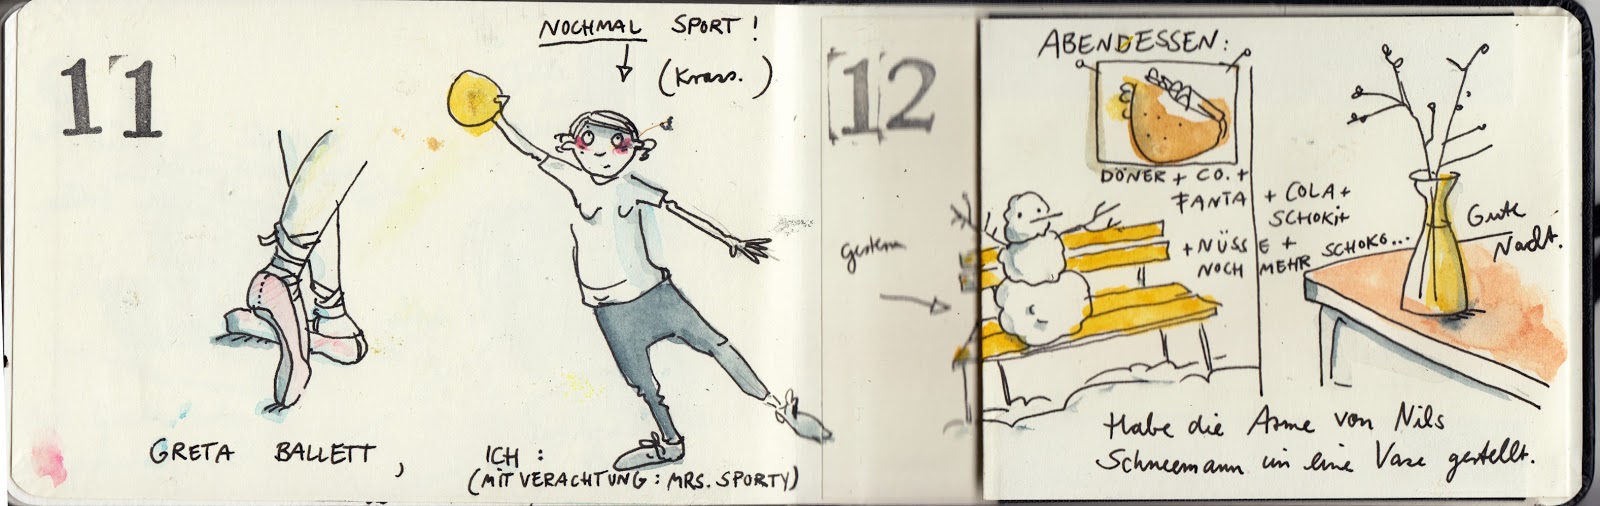 11
NOCHMAL SPORT!
(Krass.)
GRETA BALLETT,
ICH:
(MIT VERACHTUNG: MRS. SPORTY)
12
gestern
ABENDESSEN:
DÖNER + CO. +
FANTA + COLA +
SCHOKi+
+ NÜSSE + SCHOKO...
NOCH MEHR
Gute
Nacht.
Habe die Arme von Nils
Schneemann in eine Vase gestellt.